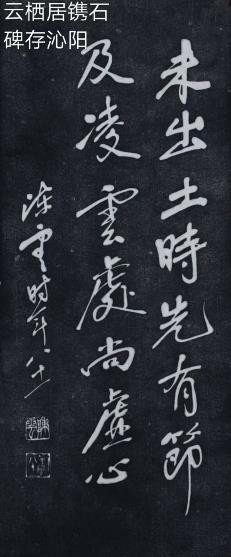 云栖居镌石
碑存沁阳
未出土時先有節
及凌雲處尚虛心
陈雲时年八十一